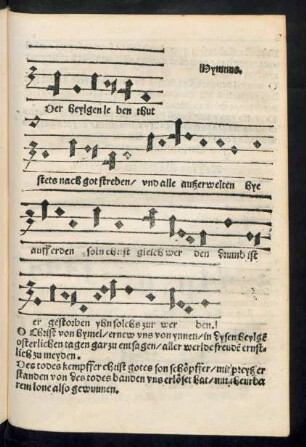 Hymnus.
Der heylgen le ben thut
stets nach got streben/ vnd alle außerwelten hye
auff erden soln christ gleich wer den drumb ist
er gestorben yhn solchs zur wer ben.!
O Christ von hymel/ ernew vns von ynnen/ in dysen heylgē
osterlichen tagen gar zu entsagen/ aller werlde freudē ernst-
lich zu meyden.
Des todes kempffer christ gotes son schöpffer/ mit preyß er
standen von des todes banden vns erlöset hat/ mit theurba
rem lone also gewunnen.